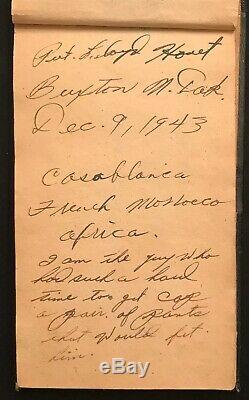 Pvt. Lloyd
Buxton N. Dak.
Dec. 9, 1943
Casablanca
French Morrocco
Africa.
I am the guy who
had such a hard
time too get
a pair of pants
that would fit
him.